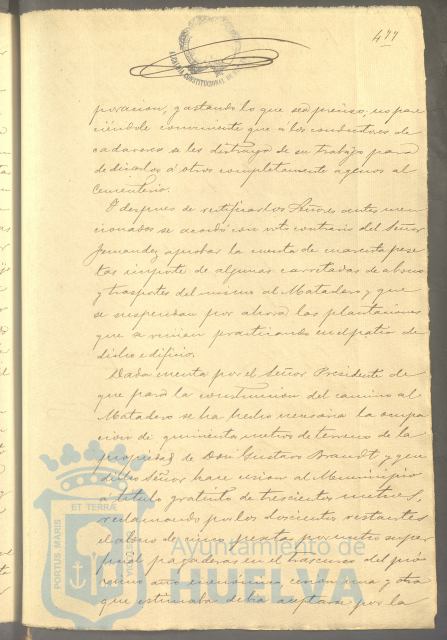 477
ALCALDIA CONSTITUCIONAL DE
poracion, gastando lo que sea preciso, no pare
ciéndole conveniente que á los conductores de
cadaveres se les distraiga de su trabajo para
dedicarlos á otros completamente agenos al
Cementerio.
Y despues de rectificar los Señores antes men
cionados se acordó con voto contrario del Señor
Jernandez aprobar la cuenta de cuarenta pese
tas importe de algunas carretadas de abono
y trasportes del mismo al Matadero y que
se suspendan por ahora las plantaciones
que se venian practicando en el patio de
dicho edificio.
Dada cuenta por el Señor Presidente de
que para la construccion del camino al
Matadero se ha hecho necesaria la ocupa
cion de quinientos metros de terreno de la
propiedad de Don Gustavo Brandt, y que
dicho Señor hace cesion al Municipio
a titulo gratuito de trescientos metros,
reclamando por los doscientos restantes
el abono de cinco pesetas por metro super
ficial pagaderas en el trascurso del pró
ximo año economico, con una y otra
que estimaba debia aceptarse por la
PORTUS MARIS
ET TERRÆ
CUSTODIA
Ayuntamiento de
HUELVA